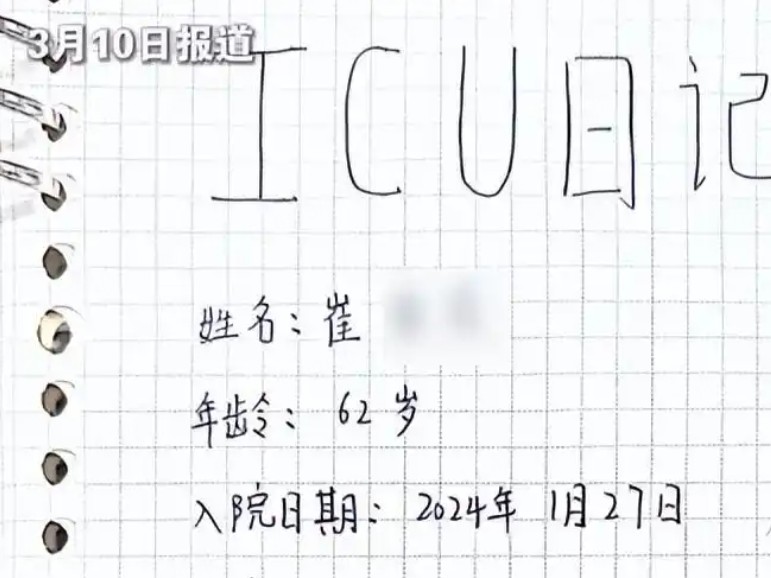 3月10日报道
ICU日记
姓名：崔
年龄：62岁
入院日期：2024年1月27日